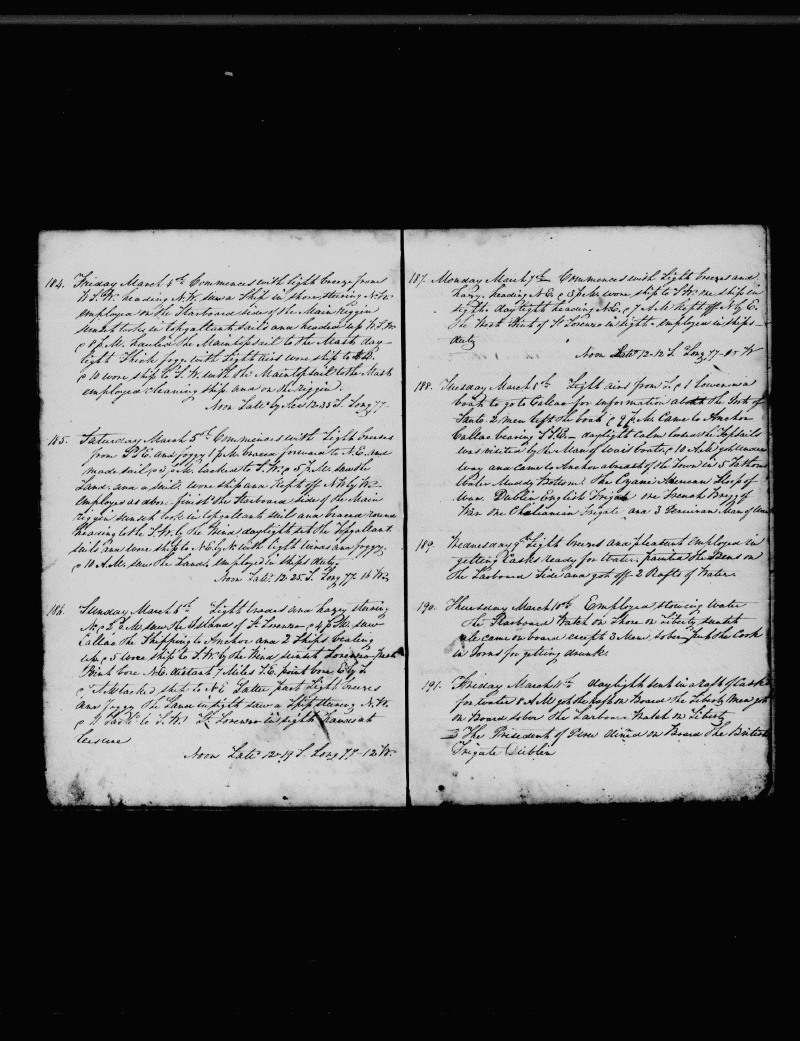 184. Friday March 4th Commences with light breeze from
W.S.W. heading N.W. saw a Ship in shore steering N.W.
employed on the Starboard side of the Main Riggin
sunset took in topgallant sails and headed up W.S.W.
@ 8 P.M. hauled the Maintopsail to the Mast day-
light Thick fogg with light airs wore ship to
@ 10 wore ship to S.W. with the Maintopsail to the Mast
employed cleaning ship and on the riggin.
Noon Latd by Acc 12-35 S. Long 77
185. Saturday March 5th Commences with Light breeses
from S.S.E. and foggy 1 P.M. braced forward to N.E. and
made sail, @ 3 P.M. tacked to S.W. @ 5 P.M. saw the
Land. and a sail. wore ship and kept off N W by W.
Employed as above. finish the Starboard side of the Main
riggin sunset took in topgallant sails and braced round
heading to the S.W. by the Wind daylight set the Topgallant
sails and wore ship to N.E. by N. with light winds and foggy.
@ 10 A.M. saw the Land. employed in ships duty
Noon Latd 12-25 S. Long 77-16 W.
186. Sunday March 6th Light breeses and hazy steering
N. @ 2 P.M. saw the Islands of St Lorenzo @ 4 P.M. saw
Callao the Shipping to Anchor and 2 Ships beating
in. @ 5 wore ship to S.W. by the Wind sunset Lorenzo
Point bore N.E. distant 7 Miles S.E. point bore E by S.
@ 7 A.M. tacked ship to N.E. Latter part Light breeses
and foggy The Land in sight saw a Ship steering N.W.
@ 11 Tackd to S.W. St Lorenzo in sight hands at
leisure
Noon Latd 12-19 S. Long 77-12 W.
187. Monday March 7th Commences with Light breeses and
hazy. heading N.E. @ 3 P.M. wore ship to S.W. one ship in
sight. daylight heading N.E. @ 7 A.M. kept off N by E.
The West Point of St Lorenzo in sight employed in ships
duty
Noon Latd 12-12 S. Long 77-05 W
188. Tuesday March 8th Light airs from S. @ 1 lowered a
boat to go to Callao for information the Port of
2 men left the boat @ 9 P.M. Came to Anchor
Callao bearing daylight calm loosed the Topsails
was visited by the Man of wars boats @ 10 A.M. got under
way and came to Anchor abreast of the Town in 5 Fathoms
Water Muddy Bottom. The Cyane American Sloop of
War. Dublin English Frigate one French Brigg of
War One Frigate and 3 Peruvian Man of War
189. Wednesday 9th Light breeses and pleasant employed in
getting Casks ready for water. painted the on
the Larboard Side and got off 2 Rafts of Water.
190. Thursday March 10th Employed stowing water
the Starboard Watch on Shore on Liberty sunset
all came on board except 3 Men. sober put the Cook
in Irons for getting drunk.
191. Friday March 11th daylight sent in a raft of Casks
for water 8 A.M. got the raft on Board The Liberty Men got
on Board sober The Larboard Watch on Liberty
The President of Peru dined on Board The British
Frigate Dublin